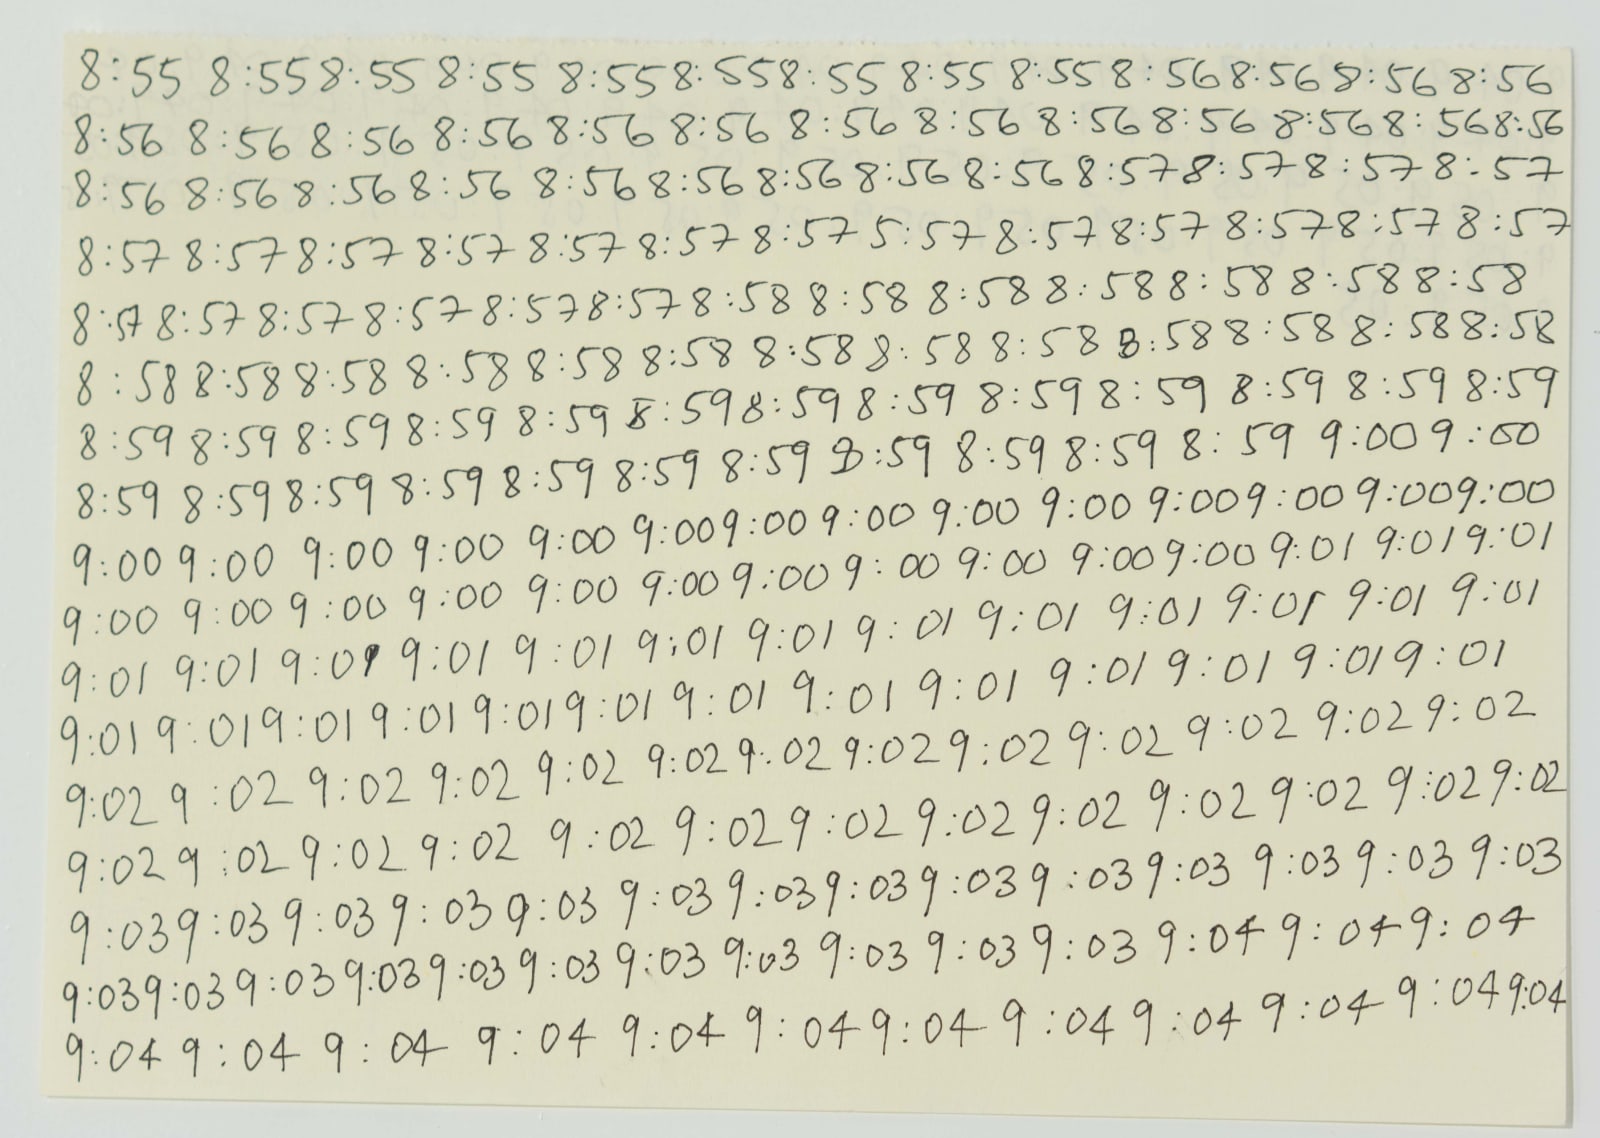 8:55 8:55 8:55 8:55 8:55 8:55 8:55 8:55 8:55 8:56 8:56 8:56 8:56
8:56 8:56 8:56 8:56 8:56 8:56 8:56 8:56 8:56 8:56 8:56 8:56 8:56
8:56 8:56 8:56 8:56 8:56 8:56 8:56 8:56 8:56 8:57 8:57 8:57 8:57
8:57 8:57 8:57 8:57 8:57 8:57 8:57 5:57 8:57 8:57 8:57 8:57 8:57
8:57 8:57 8:57 8:57 8:57 8:57 8:58 8:58 8:58 8:58 8:58 8:58 8:58
8:58 8:58 8:58 8:58 8:58 8:58 8:58 8:58 8:58 8:58 8:58 8:58 8:58
8:59 8:59 8:59 8:59 8:59 8:59 8:59 8:59 8:59 8:59 8:59 8:59 8:59
8:59 8:59 8:59 8:59 8:59 8:59 8:59 8:59 8:59 8:59 8:59 9:00 9:00
9:00 9:00 9:00 9:00 9:00 9:00 9:00 9:00 9:00 9:00 9:00 9:00 9:00 9:00
9:00 9:00 9:00 9:00 9:00 9:00 9:00 9:00 9:00 9:00 9:00 9:01 9:01 9:01
9:01 9:01 9:01 9:01 9:01 9:01 9:01 9:01 9:01 9:01 9:01 9:01 9:01
9:01 9:01 9:01 9:01 9:01 9:01 9:01 9:01 9:01 9:01 9:01 9:01 9:01
9:02 9:02 9:02 9:02 9:02 9:02 9:02 9:02 9:02 9:02 9:02 9:02 9:02
9:02 9:02 9:02 9:02 9:02 9:02 9:02 9:02 9:02 9:02 9:02 9:02 9:02
9:03 9:03 9:03 9:03 9:03 9:03 9:03 9:03 9:03 9:03 9:03 9:03 9:03 9:03
9:03 9:03 9:03 9:03 9:03 9:03 9:03 9:03 9:03 9:03 9:03 9:04 9:04 9:04
9:04 9:04 9:04 9:04 9:04 9:04 9:04 9:04 9:04 9:04 9:04 9:04